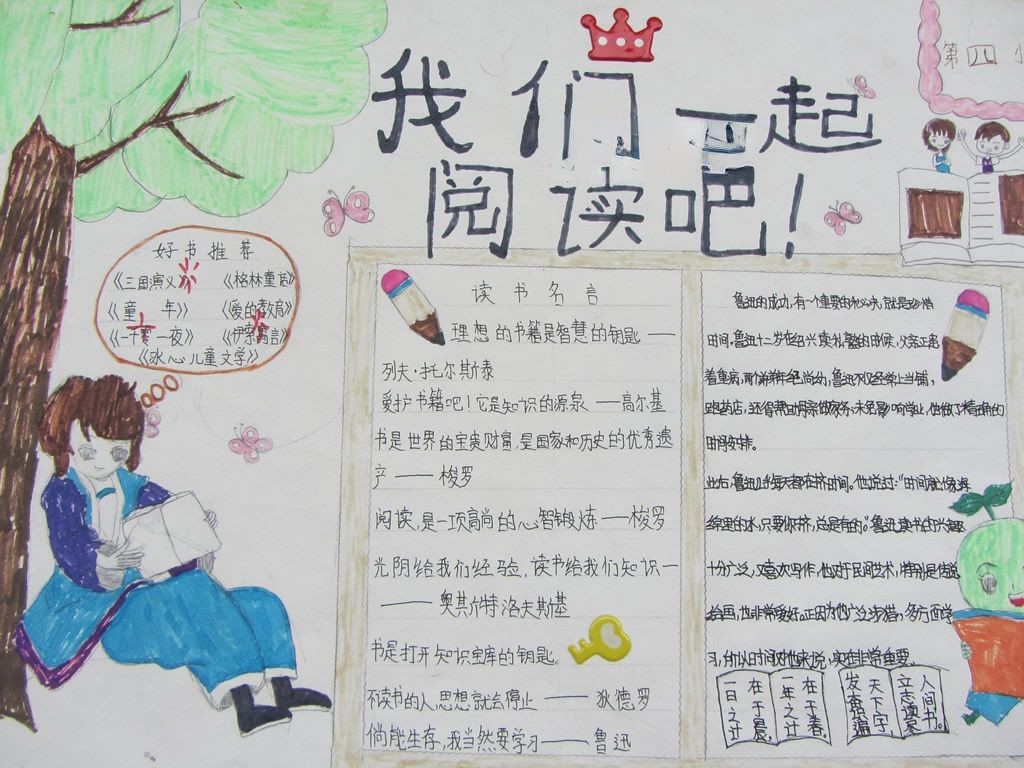 我们一起
阅读吧!
第四小
好书推荐
《三国演义》 《格林童话》
《童年》 《爱的教育》
《一千零一夜》 《伊索寓言》
《冰心儿童文学》
读书名言
理想的书籍是智慧的钥匙 —
列夫·托尔斯泰
爱护书籍吧!它是知识的源泉 —高尔基
书是世界的宝贵财富,是国家和历史的优秀遗
产 —— 梭罗
阅读,是一项高尚的心智锻炼 —梭罗
光阴给我们经验,读书给我们知识—
—— 奥其斯特洛夫斯基
书是打开知识宝库的钥匙。
不读书的人,思想就会停止 —— 狄德罗
倘能生存,我当然要学习 —— 鲁迅
鲁迅的成功,有一个重要的秘诀,就是珍惜
时间。鲁迅十二岁在绍兴读私塾的时候,父亲正患
着重病,两个弟弟年纪尚幼,鲁迅不仅经常上当铺,
跑药店,还得帮助母亲做家务,未免影响学业,他做了精确的
时间安排。
此后,鲁迅几乎每天都在挤时间。他说过:"时间就像海绵
绵里的水,只要你挤,总是有的。"鲁迅读书的兴趣
十分广泛,又喜欢写作,他对于民间艺术,特别是传说
绘画,也非常爱好。正因为他广泛涉猎,多方面学
习,所以时间对他来说,实在非常重要。
一日之计
在于晨。
一年之计
在于春。
发奋识遍
天下字,
立志读尽
人间书。